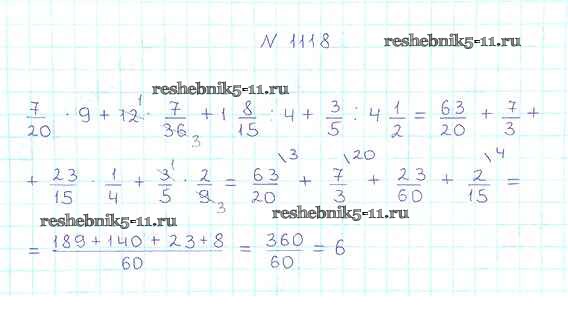 N 1118 reshebnik5-11.ru
reshebnik5-11.ru
7/20 · 9 + 12^1 · 7/36_3 + 1 8/15 : 4 + 3/5 : 4 1/2 = 63/20 + 7/3 +
+ 23/15 · 1/4 + 3^1/5 · 2/9_3 = 63/20 \3 + 7/3 \20 + 23/60 + 2/15 \4 =
reshebnik5-11.ru reshebnik5-11.ru
= 189+140+23+8/60 = 360/60 = 6